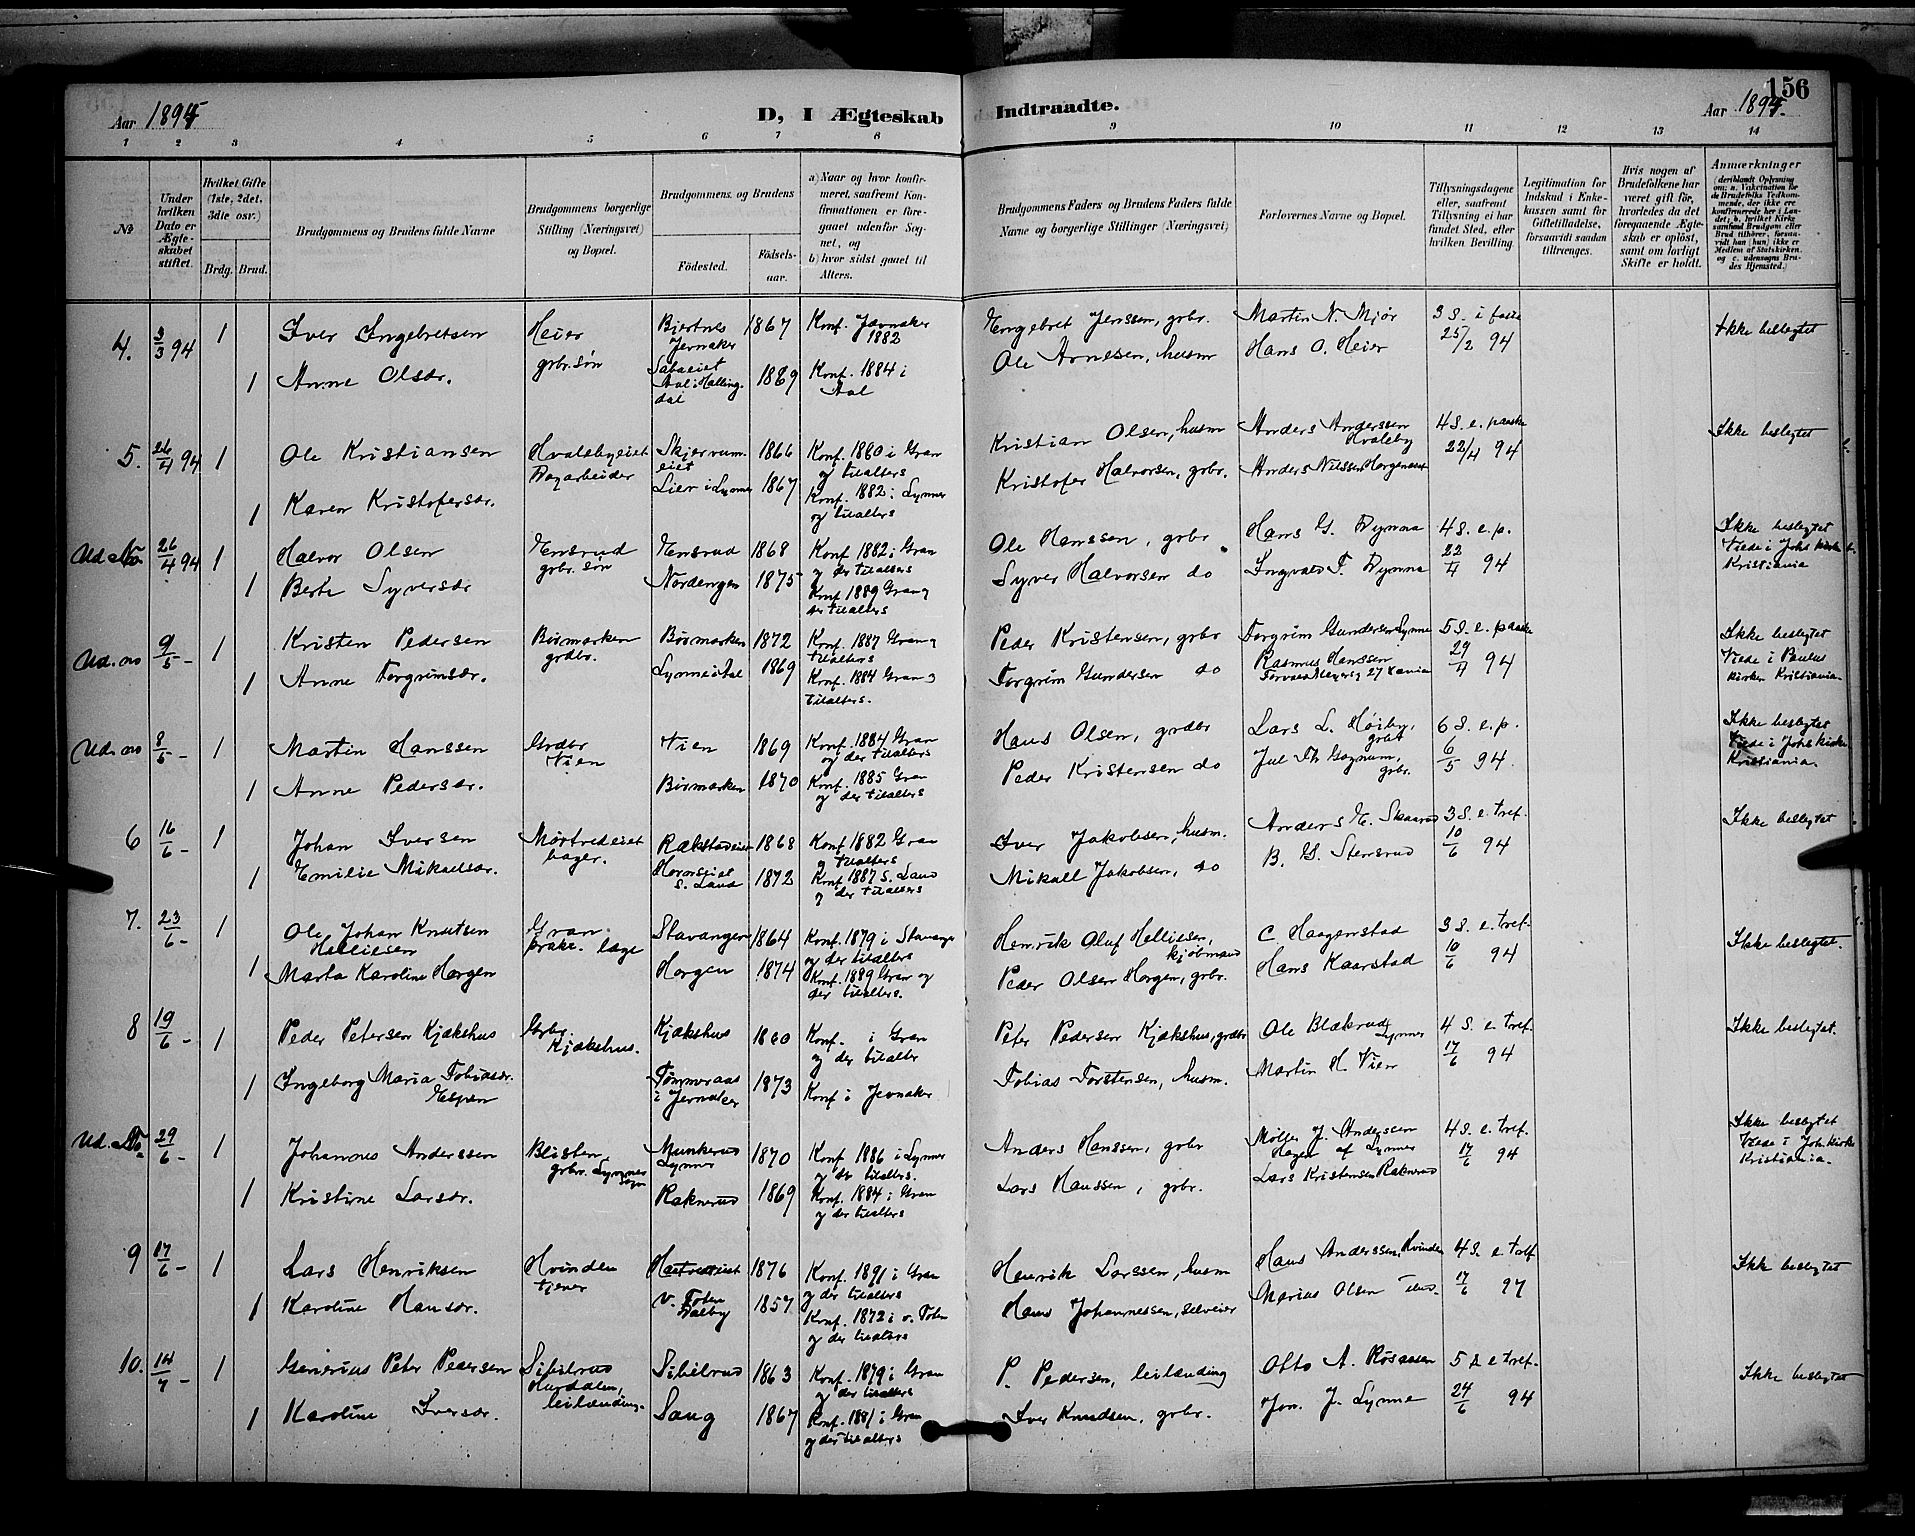 156
Aar 1894. D, I Ægteskab Indtraadte. Aar 1894.
1 2 3 4 5 6 7 8 9 10 11 12 13 14
№
Under hvilken Dato er Ægteskabet stiftet.
Hvilket Gifte (1ste, 2det, 3die osv.)
Brdg. Brud.
Brudgommens og Brudens fulde Navne
Brudgommens borgerlige Stilling (Næringsvei) og Bopæl.
Brudgommens og Brudens
Fødested. Fødselsaar.
a) Naar og hvor konfirmeret, saafremt Konfirmationen er foregaaet udenfor Sognet, og
b) hvor sidst gaaet til Alters.
Brudgommens Faders og Brudens Faders fulde Navne og borgerlige Stillinger (Næringsvei)
Forlovernes Navne og Bopæl.
Tillysningsdagene eller, saafremt Tillysning ei har fundet Sted, efter hvilken Bevilling.
Legitimation for Indskud i Enkekassen samt for Giftetilladelse, forsaavidt saadan tiltrænges.
Hvis nogen af Brudefolkene har været gift før, hvorledes da det foregaaende Ægteskab er opløst, samt om lovligt Skifte er holdt.
Anmærkninger
(deriblandt Oplysning om: a. Vakcination for de Brudefolks Vedkommende, der ikke ere konfirmerede her i Landet; b. hvilket Kirkesamfund Brudgom eller Brud tilhører, forsaavidt han (hun) ikke er Medlem af Statskirken, og c. udensogns Brudes Hjemsted.)
4. 3/3 94 1 Iver Ingebretsen Heier grbr.søn Bjertnes Jevnaker 1867 Konf. Jævnaker 1882 Engebret Jenssen, grbr. Martin N. Mjør 3 S. i faste 25/2 94 Ikke beslegtet
1 Anne Olsdr. Aal i Hallingdal 1869 Konf. 1884 i Aal Ole Arnesen, husm Hans O. Heier
5. 26/4 94 1 Ole Kristiansen Hvalebyeiet Dagarbeider Skjervumeiet 1866 Konf. 1880 i Gran og tilalters Kristian Olsen, husm Anders Anderssen Hvaleby 4 S. e. paaske 22/4 94 Ikke beslegtet
1 Karen Kristofersdr. Lier i Lynner 1867 Konf. 1882 i Lynner og tilalters Kristofer Halvorsen, grbr. Anders Nilssen Horgenseiet
Ud. No 26/4 94 1 Halvor Olsen Ensrud grbr. søn Ensrud 1868 Konf. 1882 i Gran og der tilalters Ole Hanssen, grbr Hans G. Dynna 4 S. e. p. 22/4 94 Ikke beslegtet Viede i Johs kirke Kristiania
1 Berte Syversdr Nordengen 1875 Konf. 1889 Gran og der tilalters Syver Halvorsen do Ingvald T. Dynna
Ud. no 9/5 - 1 Kristen Pedersen Bismarken grdbr. Bismarken 1872 Konf. 1887 Gran og tilalters Peder Kristensen, grbr Torgrim Gundersen Lynne 5 S. e. paaske 29/4 94 Ikke beslegtet Viede i Paulus kirken Kristiania
1 Anne Torgrimsdr. 1869 Konf. 1884 Gran og tilalters. Torgrim Gundersen do Rasmus Hanssen
Ud. no 8/5 - 1 Martin Hanssen Grdbr Vien Vien 1869 Konf. 1884 Gran og der tilalters Hans Olsen, grdbr Lars L. Høiby, grbr 6 S. e. p. 6/5 94. Ikke beslegtet Viede i Johs kirke Kristiania
1 Anne Pedersdr. Bismarken 1870 Konf. 1885 Gran og der tilalters Peder Kristensen do grbr.
6 16/6 - 1 Johan Iversen Morstadeiet bager. Rækstadeiet 1868 Konf. 1882 Gran og tilalters Iver Jakobsen, husm. Anders E. Skaarud 3 S. e. tref. 10/6 94 Ikke beslegtet
1 Emilie Mikalsdr. S. Land 1872 Konf. 1887 S. Land og der tilalters Mikall Jakobsen, do B. G. Stensrud
7. 23/6 - 1 Ole Johan Knutsen Helliesen Gran. prakt. læge Stavanger 1864 Konf. 1879 i Stavanger og der tilalters Henrik Oluf Helliesen, kjøbmand C Haagenstad 3 S. e. tref- 10/6 94 Ikke beslegtet.
1 Marta Karoline Horgen Horgen 1874 Konf. 1889 Gran og der tilalters. Peder Olsen Horgen, grbr. Hans Kaarstad
8 19/6 - 1 Peder Petersen Kjækshus Grbr. Kjækshus. Kjækshus 1860 Konf. i Gran og der tilalter Peter Pedersen Kjækshus, grdbr Ole Blækrud Lynner 4 S. e. tref. 17/6 94 Ikke beslegtet.
1 Ingeborg Maria Tobiasdr. Espen Tømmeraas i Jevnaker 1873 Konf i Jevnaker Tobias Torstensen, husm. Martin H. Vien
Ud. No 29/6 - 1 Johannes Anderssen Blisten grbr. Lynner sogn Munkerud Lynner 1870 Konf 1886 i Lynner og der tilalters. Anders Hanssen, grbr Møller J. Anderssen Hagen af Lynner 4 S. e. tref. 17/6 94 Ikke beslegtet Viede i Joh. Kirke Kristiania.
1 Kristine Larsdr. Raknerud 1869 Konf. 1884 i Gran og der tilalters Lars Hanssen, grbr. Lars Kristensen Raknerud
9 17/6 - 1 Lars Henriksen Hvinden tjener 1876 Konf. 1891 i Gran og der tilalters Henrik Larssen, husm Hans Anderssen Hvinden 4 S. e tref. 17/6 94 Ikke beslegtet
1 Karoline Hansdr. V. Toten 1857. Konf. 1872 i v. Toten og der tilalters Hans Johannessen, selveier Marius Olsen
10. 14/7 - 1 Generius Peter Pedersen Sibilrud Hurdalen, leilænding. Sibilrud 1863 Konf. 1879 i Gran og der tilalters P. Pedersen, leilænding Otto A. Røsaasen 5 S e tref- 24/6 94 Ikke beslegtet
1 Karoline Iversdr. Saug 1867 Konf. 1881 i Gran og der tilalters Iver Knudsen, grbr. Jon. J. Lynne